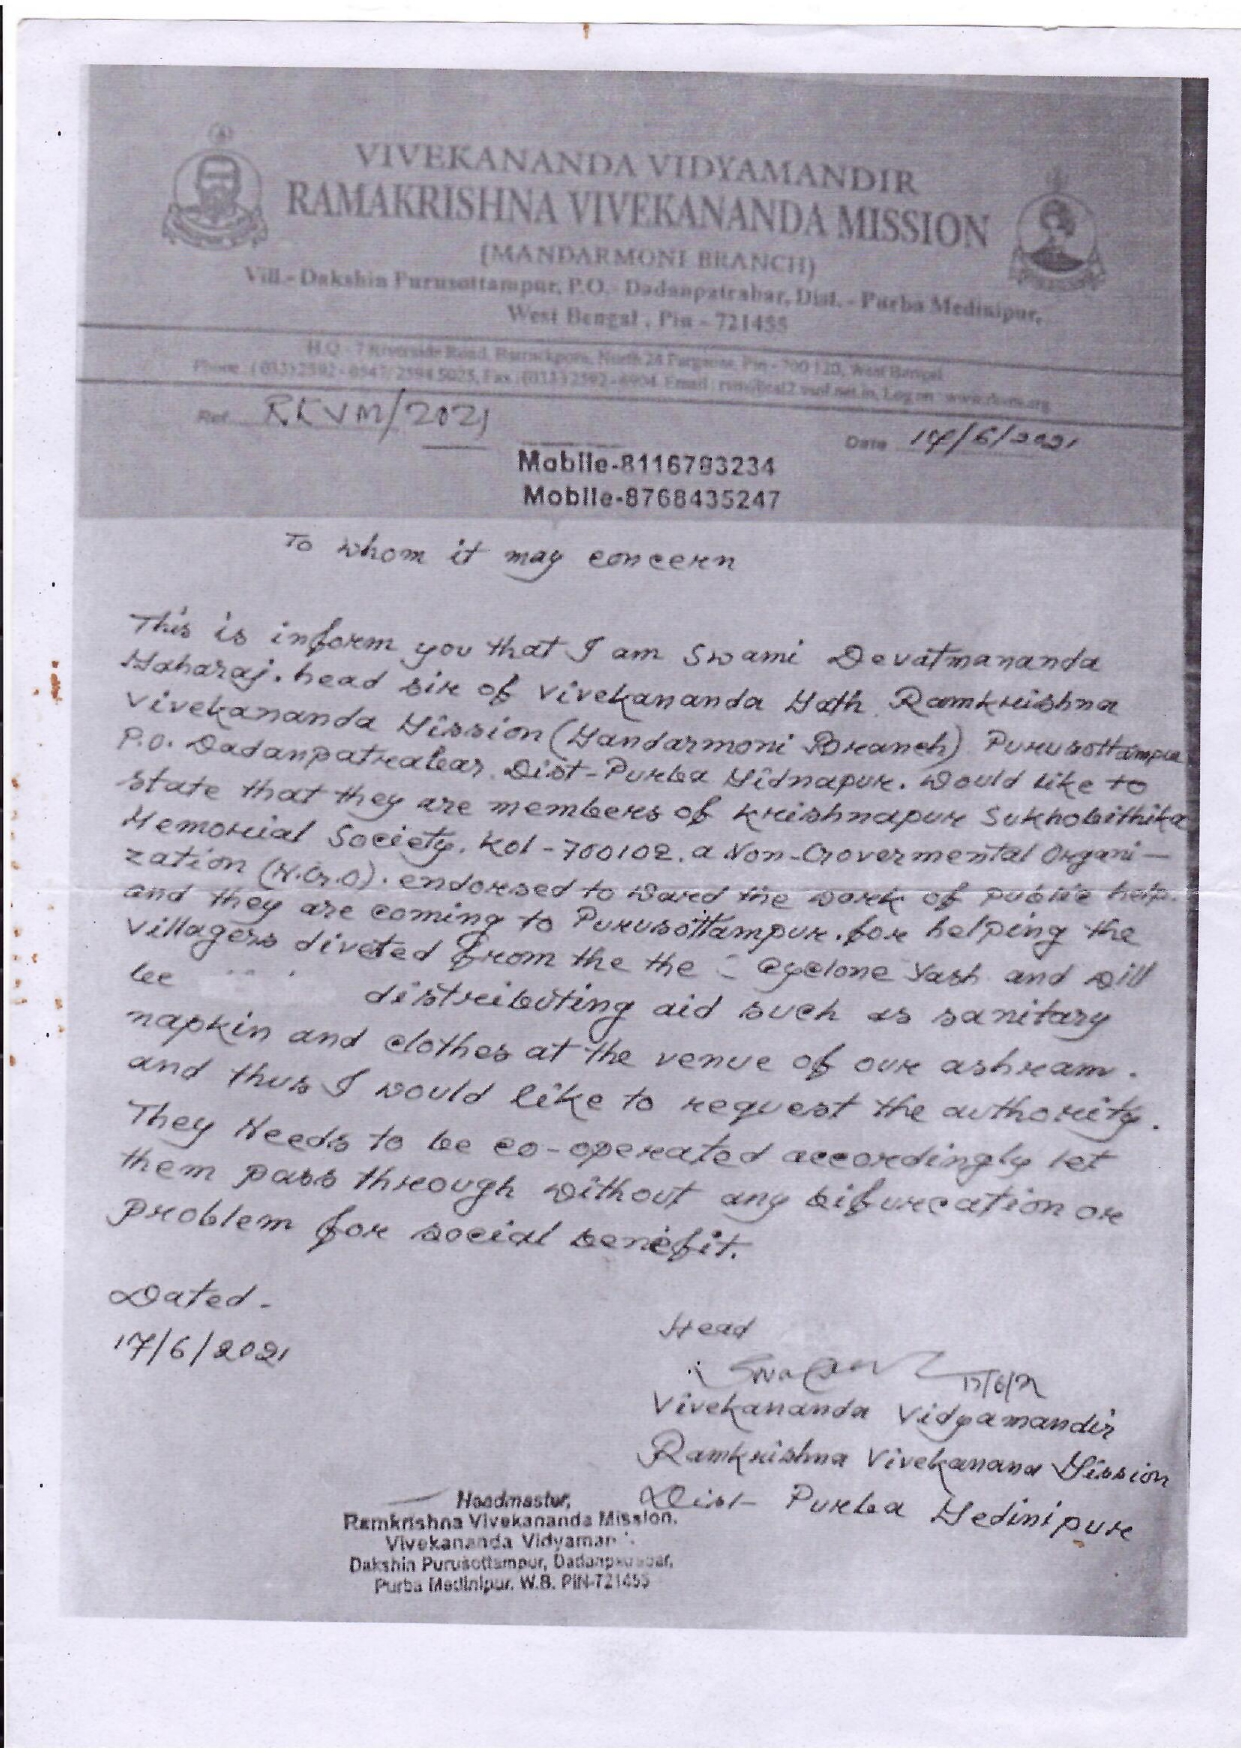 VIVEKANANDA VIDYAMANDIR
RAMAKRISHNA VIVEKANANDA MISSION
(MANDARMONI BRANCH)
Vill.- Dakshin Purusottampur, P.O.- Dadanpatrabar, Dist. - Purba Medinipur,
West Bengal , Pin - 721455
H.Q. - 7 Riverside Road, Barrackpore, North 24 Parganas, Pin - 700 120, West Bengal
Phone : (033) 2592 - 0547/ 2594 5025, Fax : (033) 2592 - 6904 Email : Log on : www.rkvm.org
Ref. RKVM/2021
Date 17/6/2021
Mobile-8116793234
Mobile-8768435247
To whom it may concern
This is inform you that I am Swami Devatmananda
Maharaj. head sir of Vivekananda Math Ramkrishna
Vivekananda Mission (Mandarmoni Branch) Purusottampur
P.O. Dadanpatrabar. Dist-Purba Midnapur. Would like to
state that they are members of Krishnapur Sukhobithika
Memorial Society. Kol-700102. a Non-Govermental Organi-
zation (N.G.O). endorsed to ward the work of public help.
and they are coming to Purusottampur. for helping the
villagers diveted from the the Cyclone Yash and will
be distributing aid such as sanitary
napkin and clothes at the venue of our ashram.
and thus I would like to request the authority.
They Needs to be co-operated accordingly let
them pass through without any bifurcation or
problem for social benefit.
Dated-
17/6/2021
Head
17/6/21
Vivekananda Vidyamandir
Ramkrishna Vivekanana Mission
Dist- Purba Medinipur
Headmaster,
Ramkrishna Vivekananda Mission,
Vivekananda Vidyaman
Dakshin Purusottampur, Dadanpatrabar,
Purba Medinipur, W.B. PIN-721455